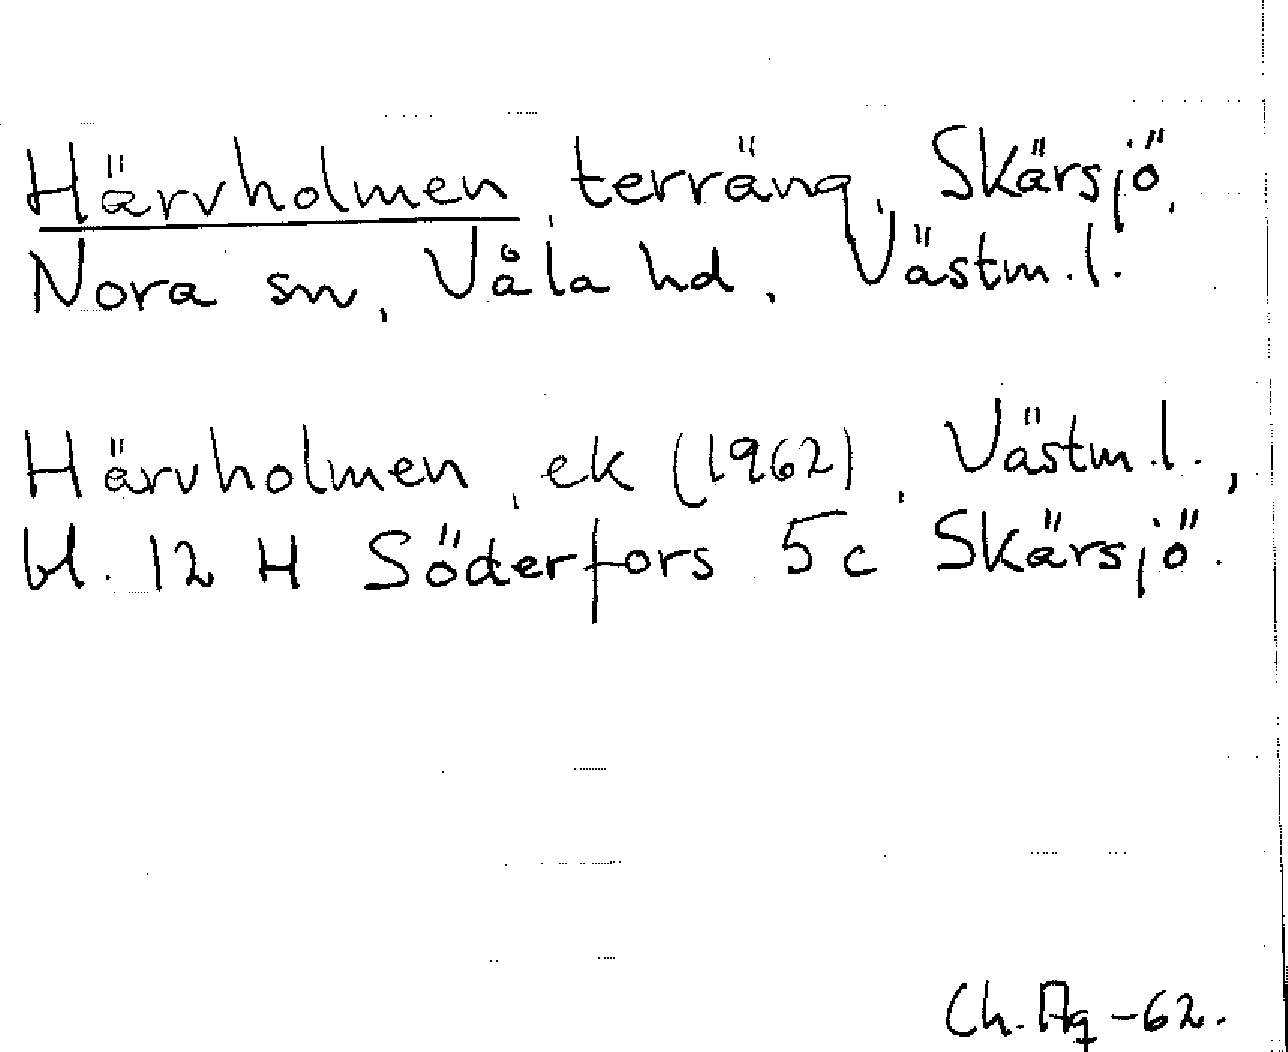 Härvholmen, terräng, Skärsjö,
Nora sn, Våla hd, Västm.l.
Härvholmen, ek (1962), Västm.l.,
bl. 12 H Söderfors 5c Skärsjö.
Ch. Ag -62.